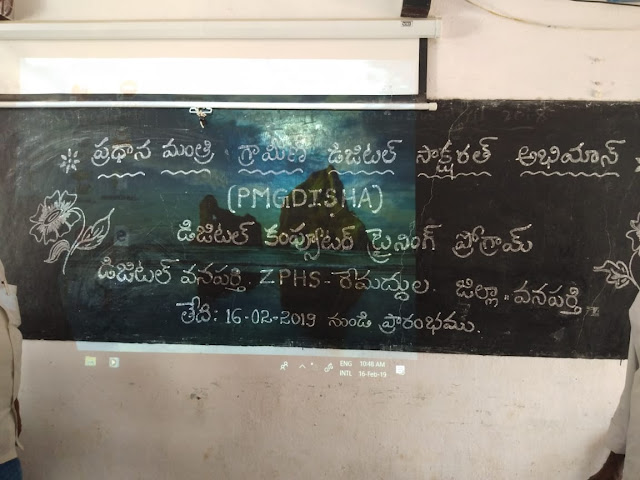 ప్రధాన మంత్రి గ్రామీణ డిజిటల్ సాక్షరత్ అభియాన్
(PMGDISHA)
డిజిటల్ కంప్యూటర్ ట్రైనింగ్ ప్రోగ్రామ్
డిజిటల్ వనపర్తి. ZPHS - రేమద్దుల. జిల్లా: వనపర్తి.
తేది: 16-02-2019 నుండి ప్రారంభము.
ENG 10:48 AM
INTL 16-Feb-19